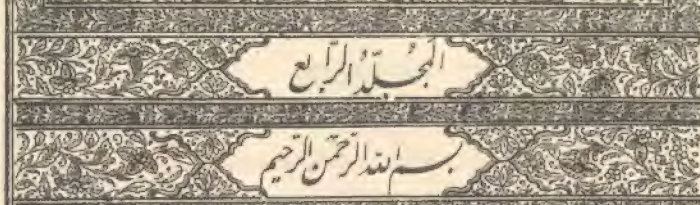 المجلّدُ الرّابع
بسم الله الرّحمن الرّحیم